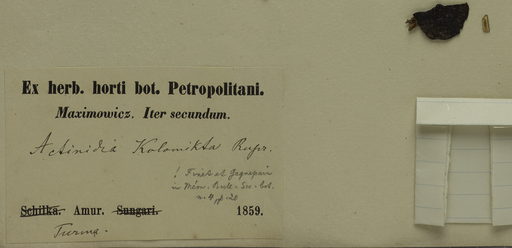 Ex herb. horti bot. Petropolitani.
Maximowicz. Iter secundum.
Actinidia Kolomikta Rupr.
! Finet et Gagnepain
in Mém. Bull. Soc. bot.
n. 4 p. 20
Schilka. Amur. Sungari. 1859.